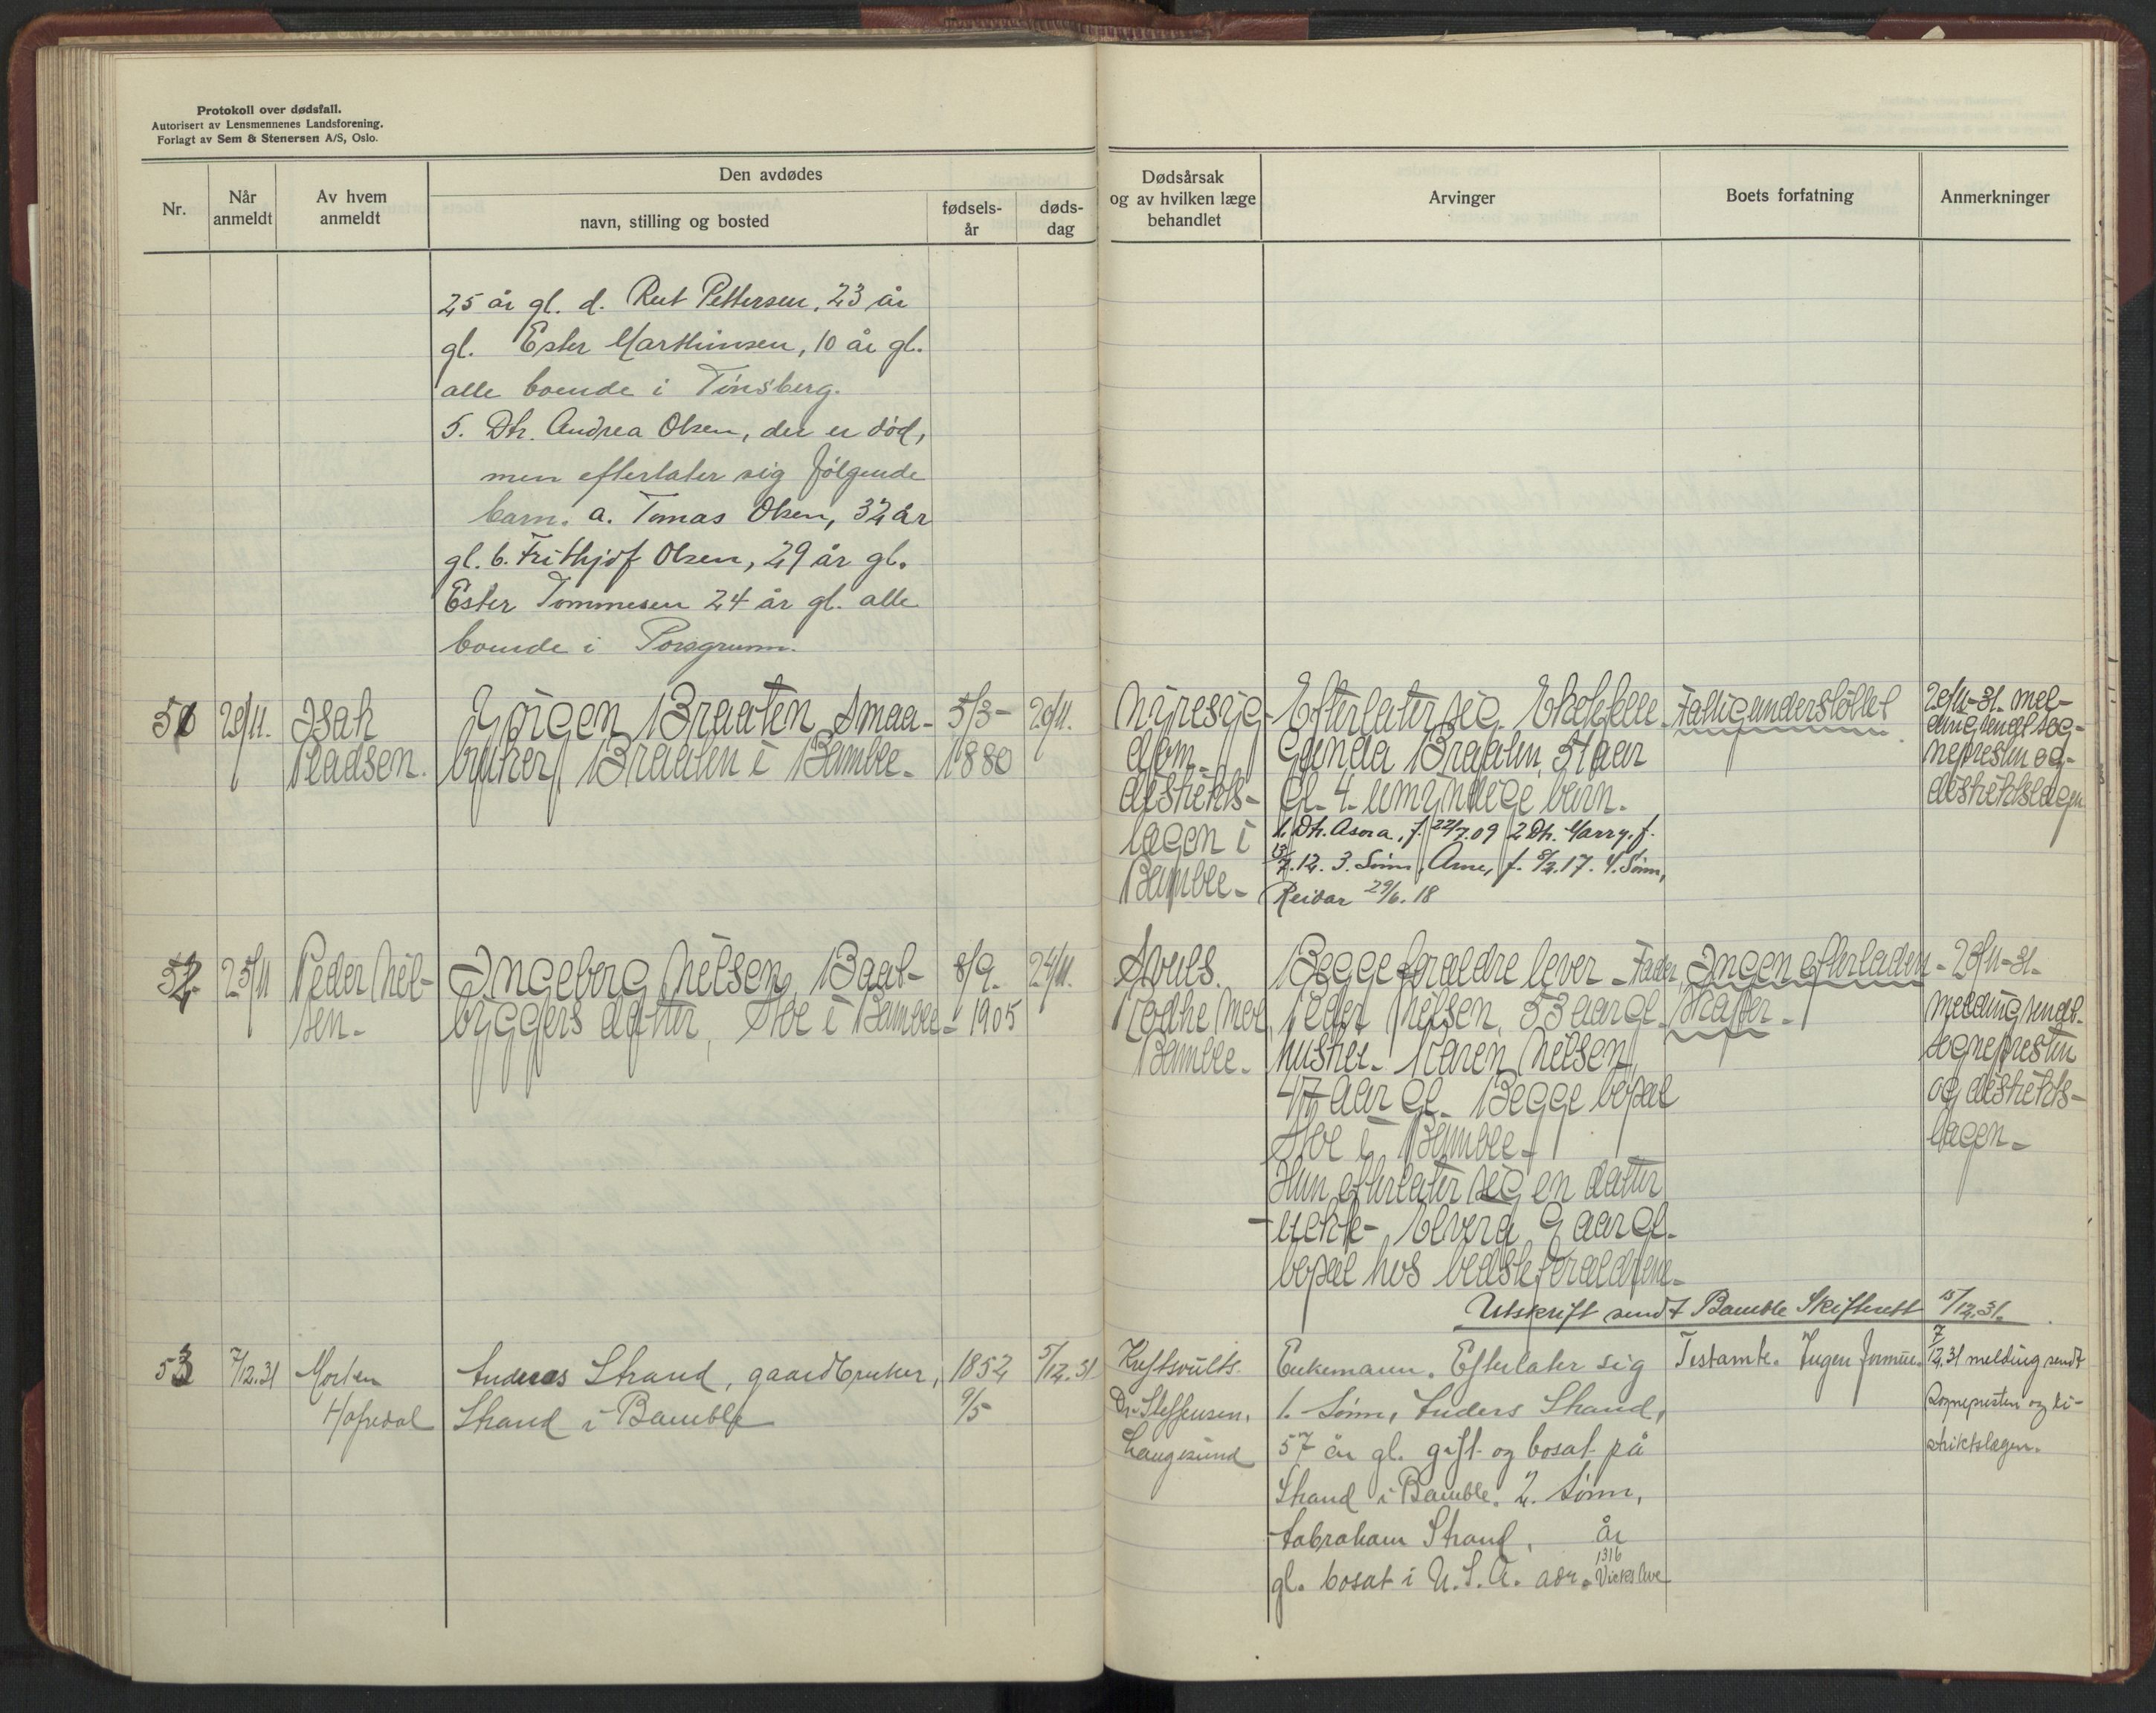 Protokoll over dødsfall.
Autorisert av Lensmennenes Landsforening.
Forlagt av Sem & Stenersen A/S, Oslo.
Nr.
Når anmeldt
Av hvem anmeldt
Den avdødes
navn, stilling og bosted
fødsels-år
døds-dag
Dødsårsak og av hvilken læge behandlet
Arvinger
Boets forfatning
Anmerkninger
25 år gl. d. Rut Pettersen, 23 år
gl. Ester Marthinsen, 10 år gl.
alle boende i Tönsberg.
5. Dtr. Andrea Olsen, der er död,
men efterlater sig fölgende
barn. a. Tomas Olsen, 32 år
gl. b. Frithjof Olsen, 29 år gl.
Ester Tommesen 24 år gl. alle
boende i Porsgrunn.
51
20/11.
Isak
Madsen.
Jörgen Braaten, Smaa-
bruker, Braaten i Bamble-
5/3-
1880
20/11.
Nyresyg-
dom-
distrikts-
lægen i
Bamble-
Efterlater sig Ektefelle-
Gunda Braaten, 51 aar
gl. 4. umyndige barn.
1. Dtr. Asora, f. 22/7.09 2 Dtr. Harry, f.
13/7.12. 3. Sönn, Arne, f. 8/2.17. 4. Sönn,
Reidar 29/6.18
Fattigunderstöttet
20/11-31. mel-
ding sendt sog-
nepresten og-
distriktslægen
52.
25/11
Peder Niel-
sen-
Ingeborg Nielsen, Baat-
byggers datter, Aby i Bamble-
8/9.
1905
24/11.
Bamble-
Begge foraeldre lever - Fader,
Peder Nielsen, 53 aar gl.
hustru. Karen Nielsen
47 aar gl. Begge bopæl
i Bamble-
Hun efterlater sig en datter
-uekte- Elvera, 9 aar gl.
bopæl hos bedsteforaeldrene-
Ingen efterladen-
skaper-
28/11-31-
melding sendt
sognepresten
og distrikts-
lægen-
Utskrift sendt Bamble Skifterett 15/12.31.
53
7/12.31
Morten
Hafsdal
Anders Strand, gaardbruker,
Strand i Bamble
1852
9/5
5/12.31
Kreftsvulst.
Dr. Steffensen,
Langesund
Enkemann. Efterlater sig
1. Sönn, Anders Strand,
57 år gl. gift og bosat på
Strand i Bamble. 2. Sönn,
Aabraham Strand, år
1316
gl. bosat i U.S.A. adr. Vicks Ave
Testamte. Ingen formue.
7/12.31 melding sendt
Sognepresten og di-
striktslægen.